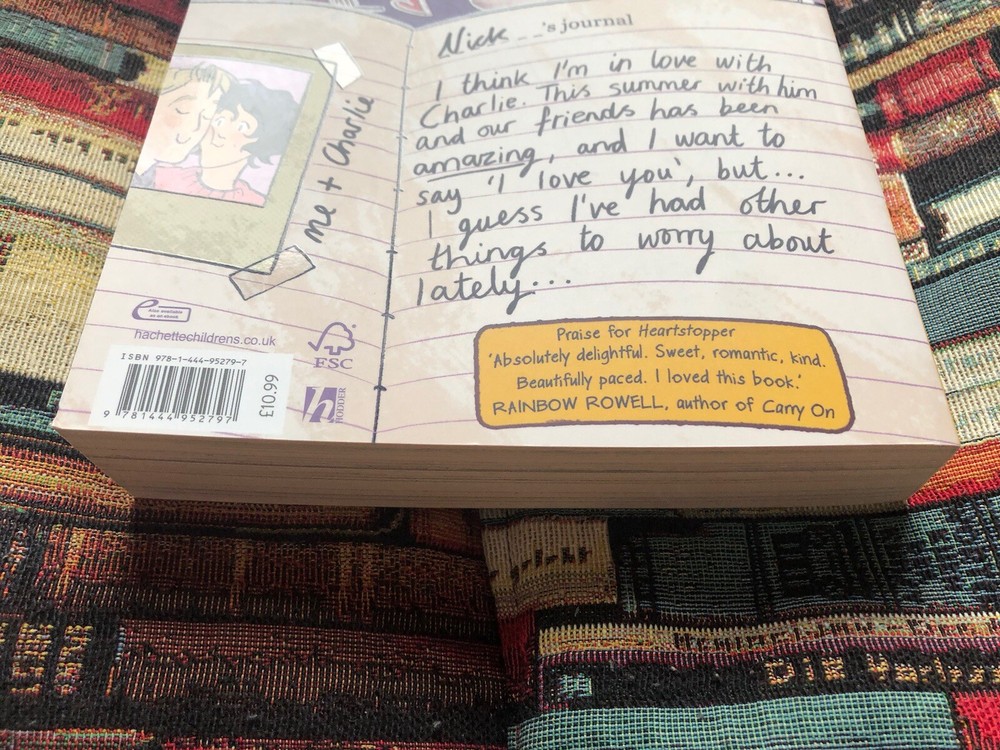 Nick _ _'s journal
I think I'm in love with
Charlie. This summer with him
and our friends has been
amazing, and I want to
say 'I love you', but...
I guess I've had other
things to worry about
lately...
me + Charlie
Also available
as an ebook
hachettechildrens.co.uk
FSC
HODDER
ISBN 978-1-444-95279-7
9 781444 952797
£10.99
Praise for Heartstopper
'Absolutely delightful. Sweet, romantic, kind.
Beautifully paced. I loved this book.'
RAINBOW ROWELL, author of Carry On